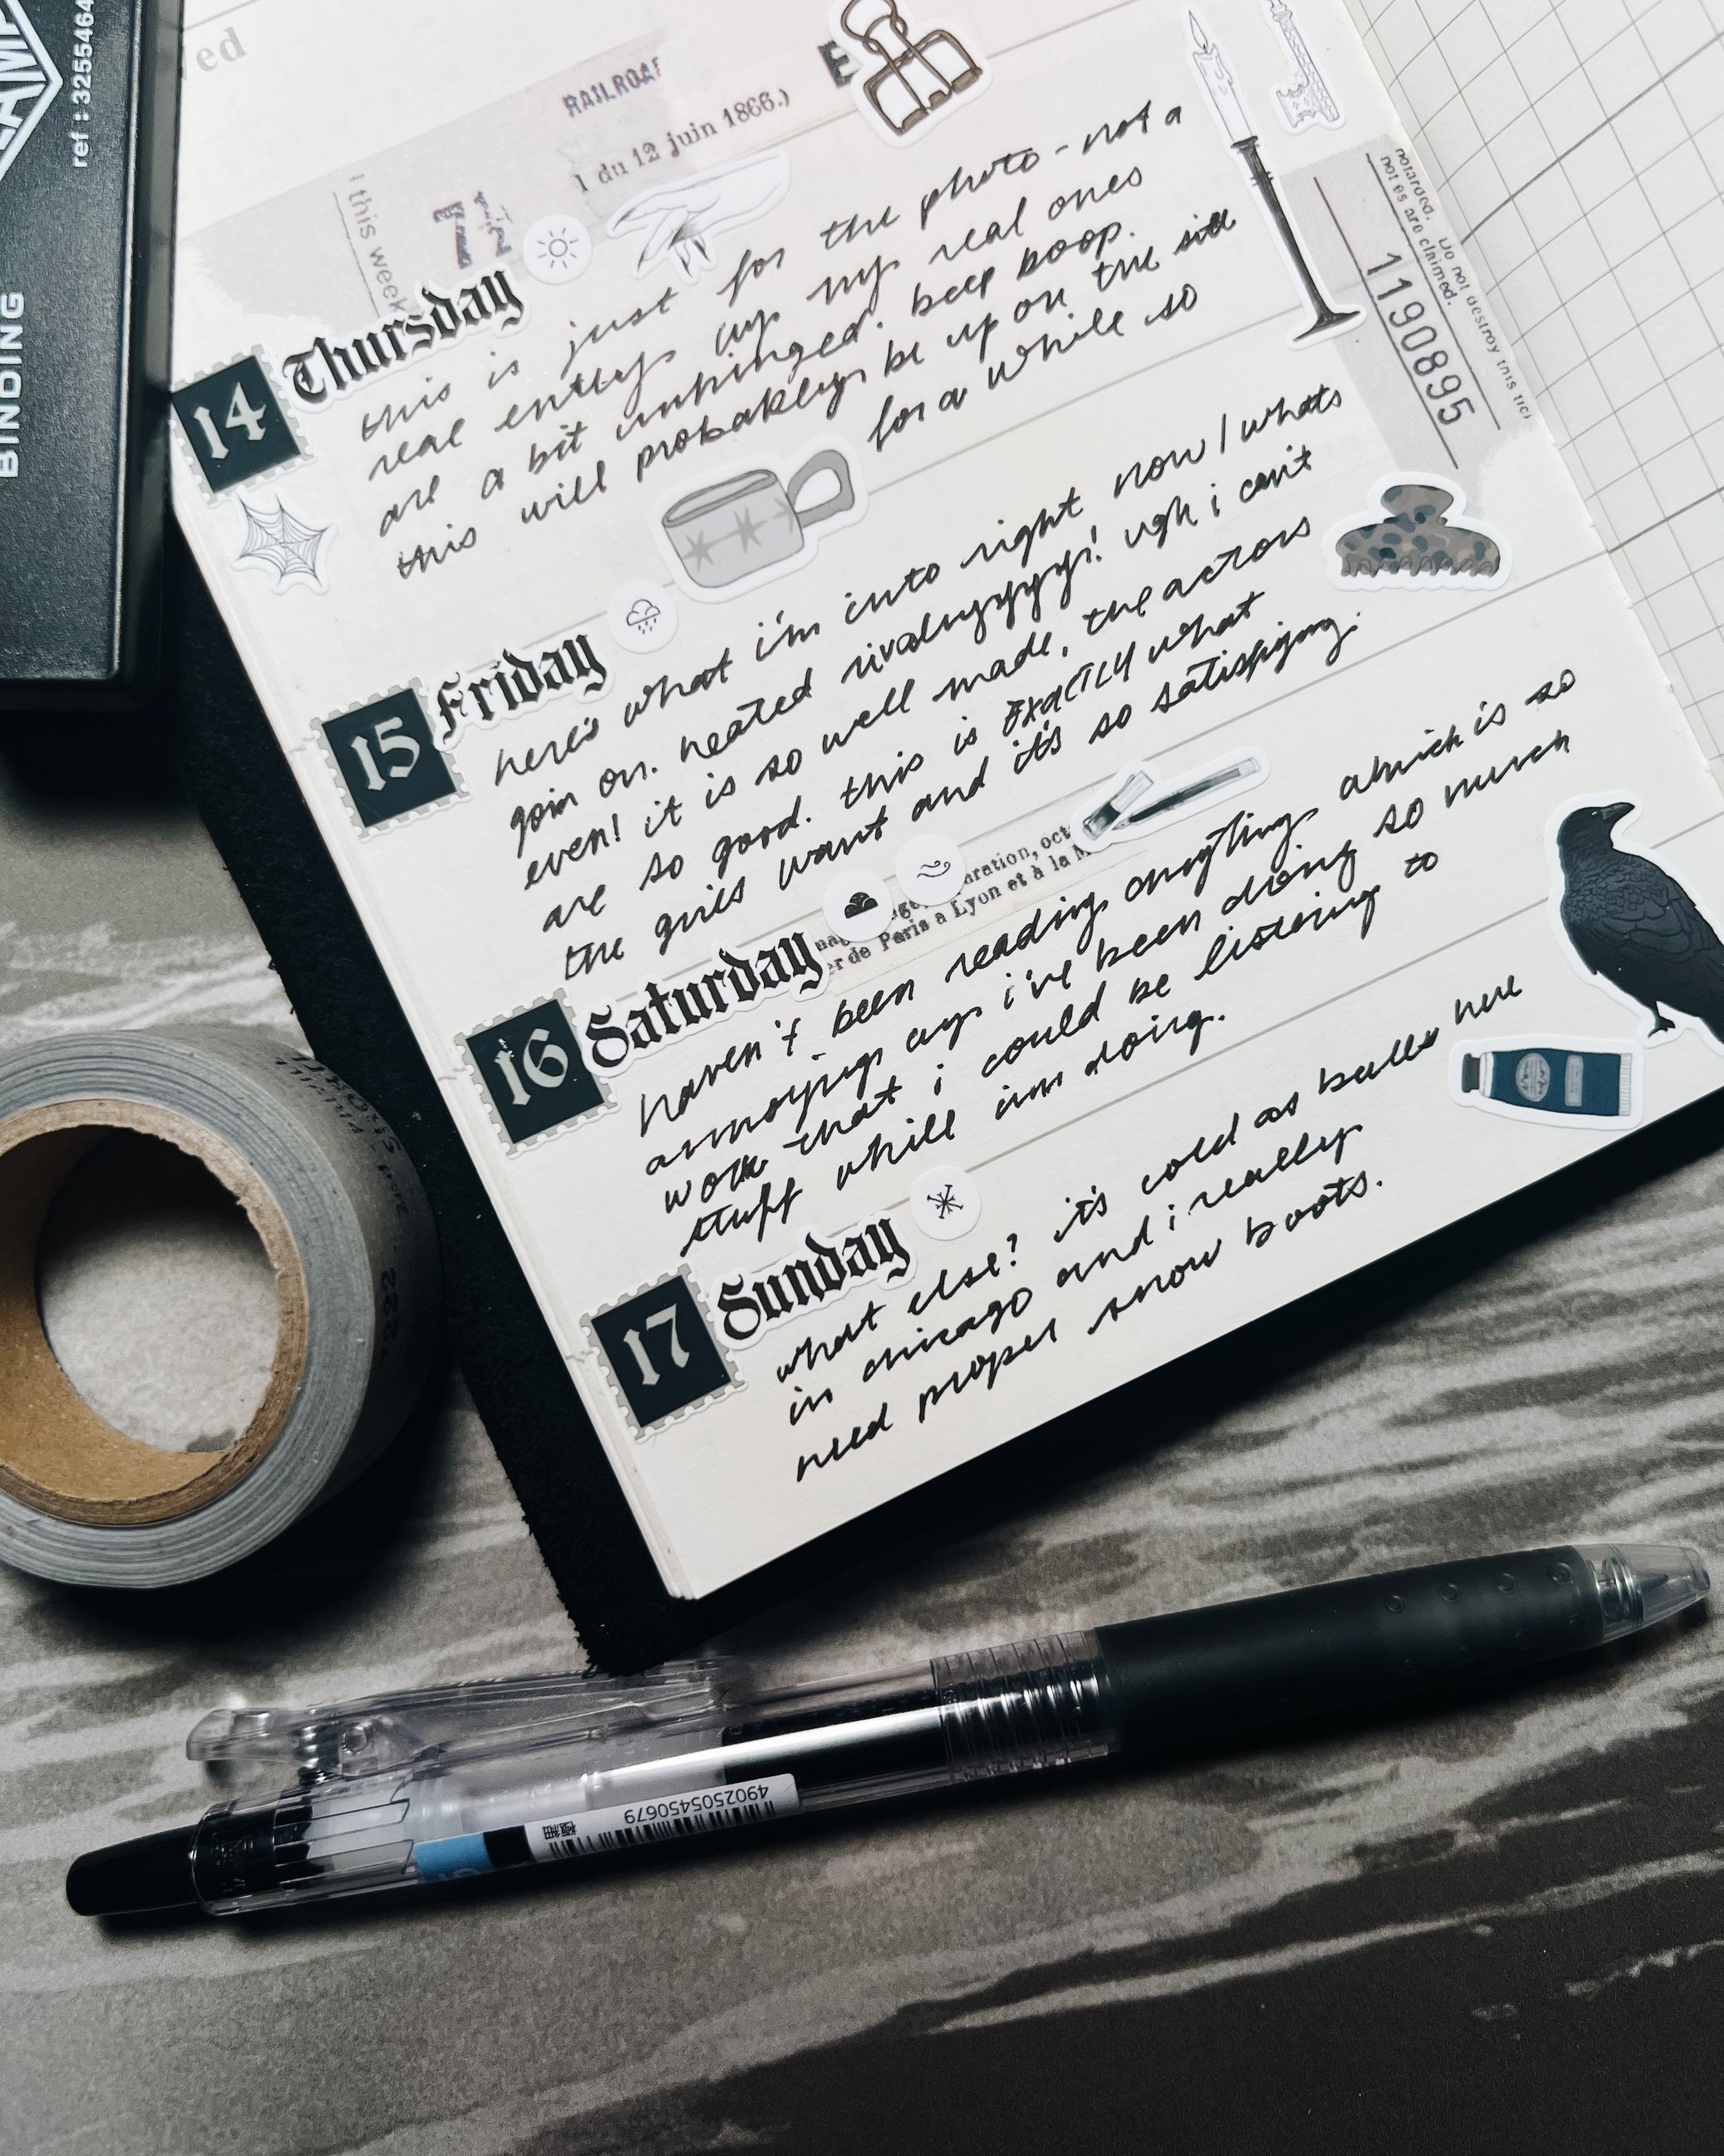 ref : 3255464
BINDING
RAILROAD
l du 12 juin 1866.)
E
this week
14 Thursday
this is just for the photo - not a
real entry cuz my real ones
are a bit unhinged. beep boop.
this will probably be up on the site
for a while so
notarded.
not es are claimed.
Do not destroy this tick
1190895
15 Friday
here's what i'm into right now / whats
goin on. heated rivalryyyyy! ugh i can't
even! it is so well made, the actors
are so good. this is EXACTLY what
the girls want and it's so satisfying.
aration, oct
er de Paris a Lyon et à la M
16 Saturday
haven't been reading anything which is so
annoying cuz i've been doing so much
work that i could be listening to
stuff while im doing.
17 Sunday
what else? it's cold as balls here
in chicago and i really
need proper snow boots.
4902505450679
極細